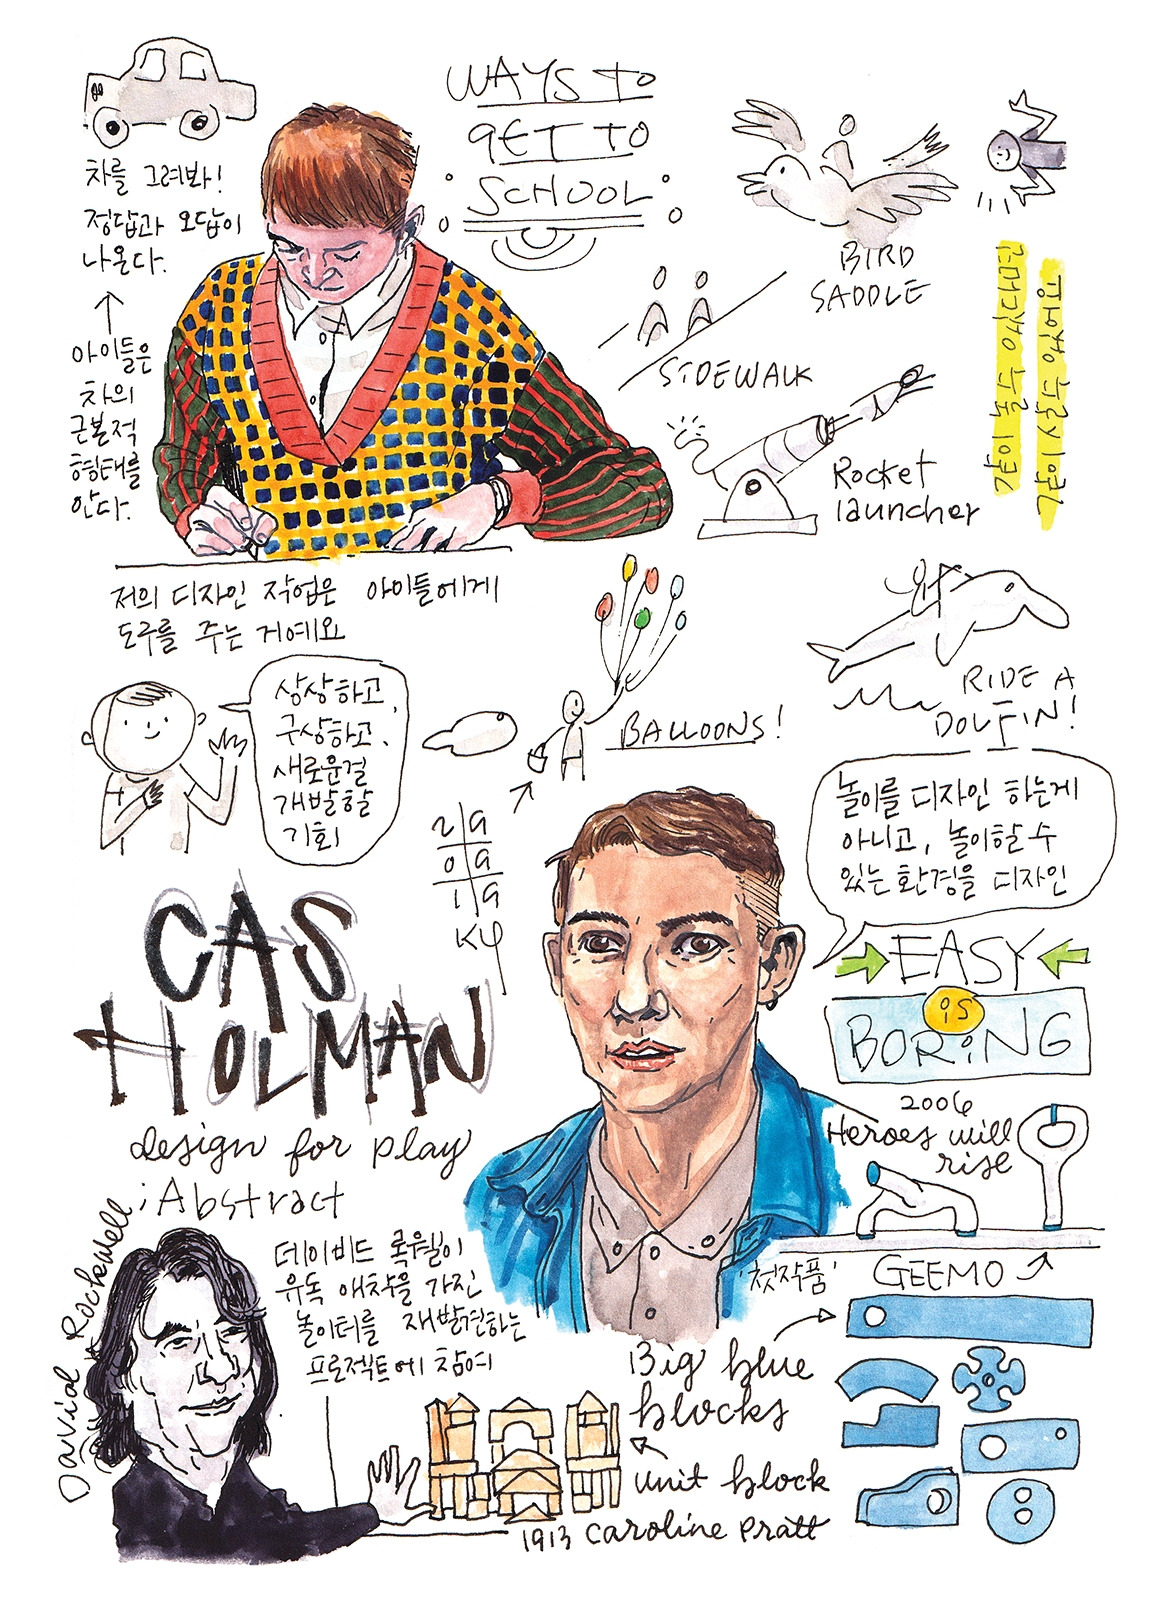 차를 그려봐!
정답과 오답이
나온다.
아이들은
차의
근본적
형태를
안다.
WAYS TO
GET TO
SCHOOL
BIRD
SADDLE
SIDEWALK
Rocket
launcher
저의 디자인 작업은 아이들에게
도구를 주는 거예요
상상하고,
구상하고,
새로운걸
개발할
기회
BALLOONS!
RIDE A
DOLFIN!
놀이를 디자인 하는게
아니고, 놀이할 수
있는 환경을 디자인
EASY
is
BORING
2019
KY
CAS
HOLMAN
design for play
; Abstract
2006
Heroes will
rise
'첫작품'
GEEMO
David Rockwell
데이비드 록웰이
유독 애착을 가진
놀이터를 재발견하는
프로젝트에 참여
Big blue
blocks
unit block
1913 Caroline Pratt